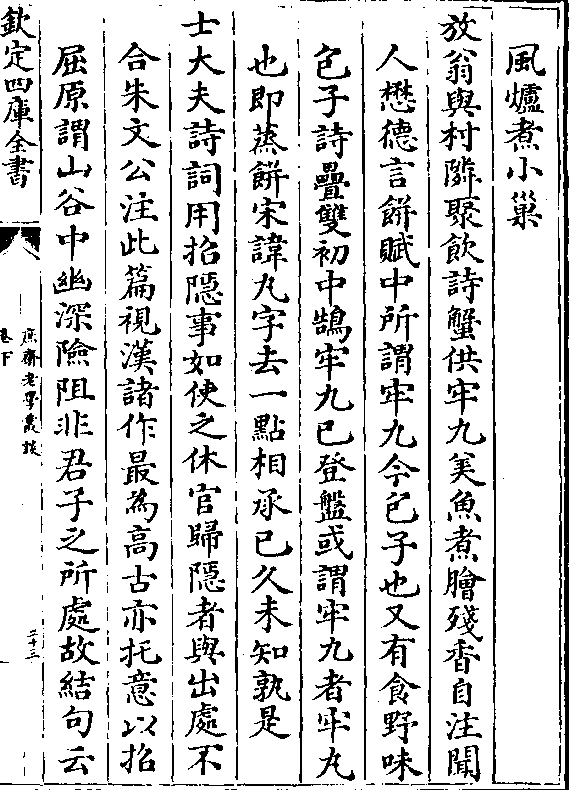 風爐煮小巢
放翁與村隣聚飲詩蟹供牢九美魚煮膾殘香自注聞
人懋德言餅賦中所謂牢九今包子也又有食野味
包子詩疊雙初中鵠牢九已登盤或謂牢九者牢丸
也即蒸餅宋諱丸字去一點相承已久未知孰是
士大夫詩詞用招隱事如使之休官歸隱者與出處不
合朱文公注此篇視漢諸作最為高古亦托意以招
屈原謂山谷中幽深險阻非君子之所處故結句云
欽定四庫全書
庶齋老學叢談
卷下
二十三